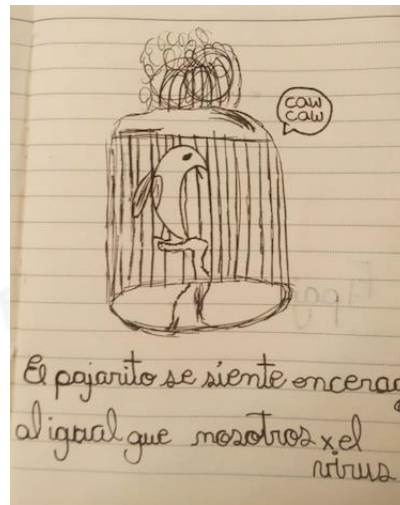 caw
caw
El pajarito se siente encerad
al igual que nosotros x el
virus